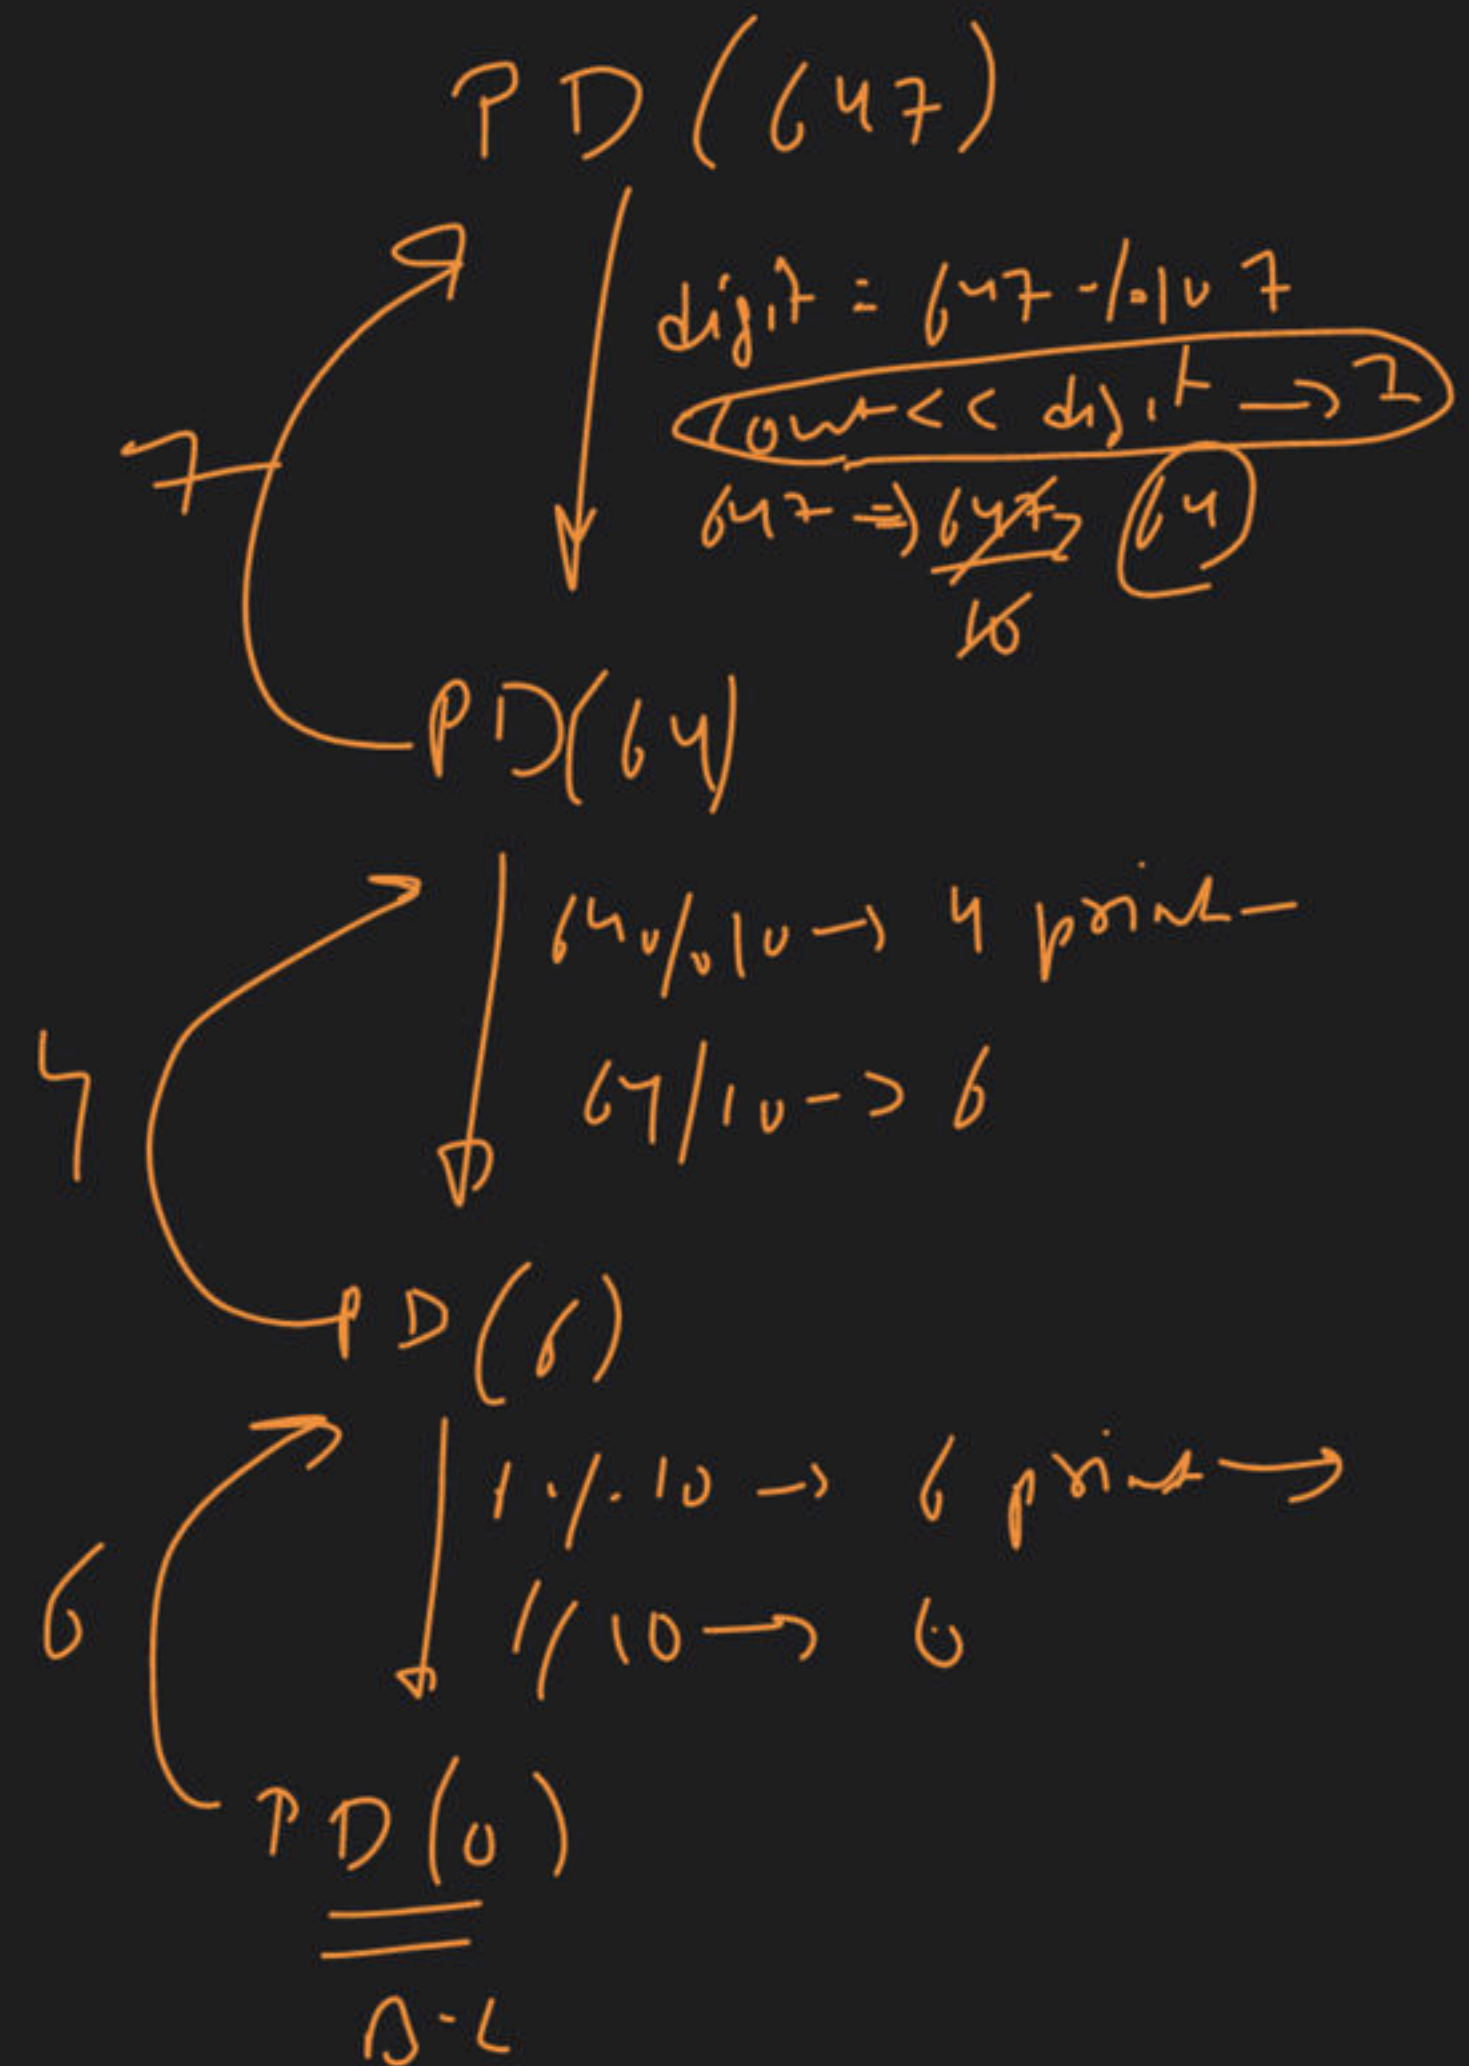 PD(647)
digit = 647 % 10 7
cout << digit → 7
647 => 647 64
10
7
PD(64)
64 % 10 → 4 print
64/10 -> 6
4
PD(6)
1 % 10 → 6 print →
1/10 → 0
6
PD(0)
B-C